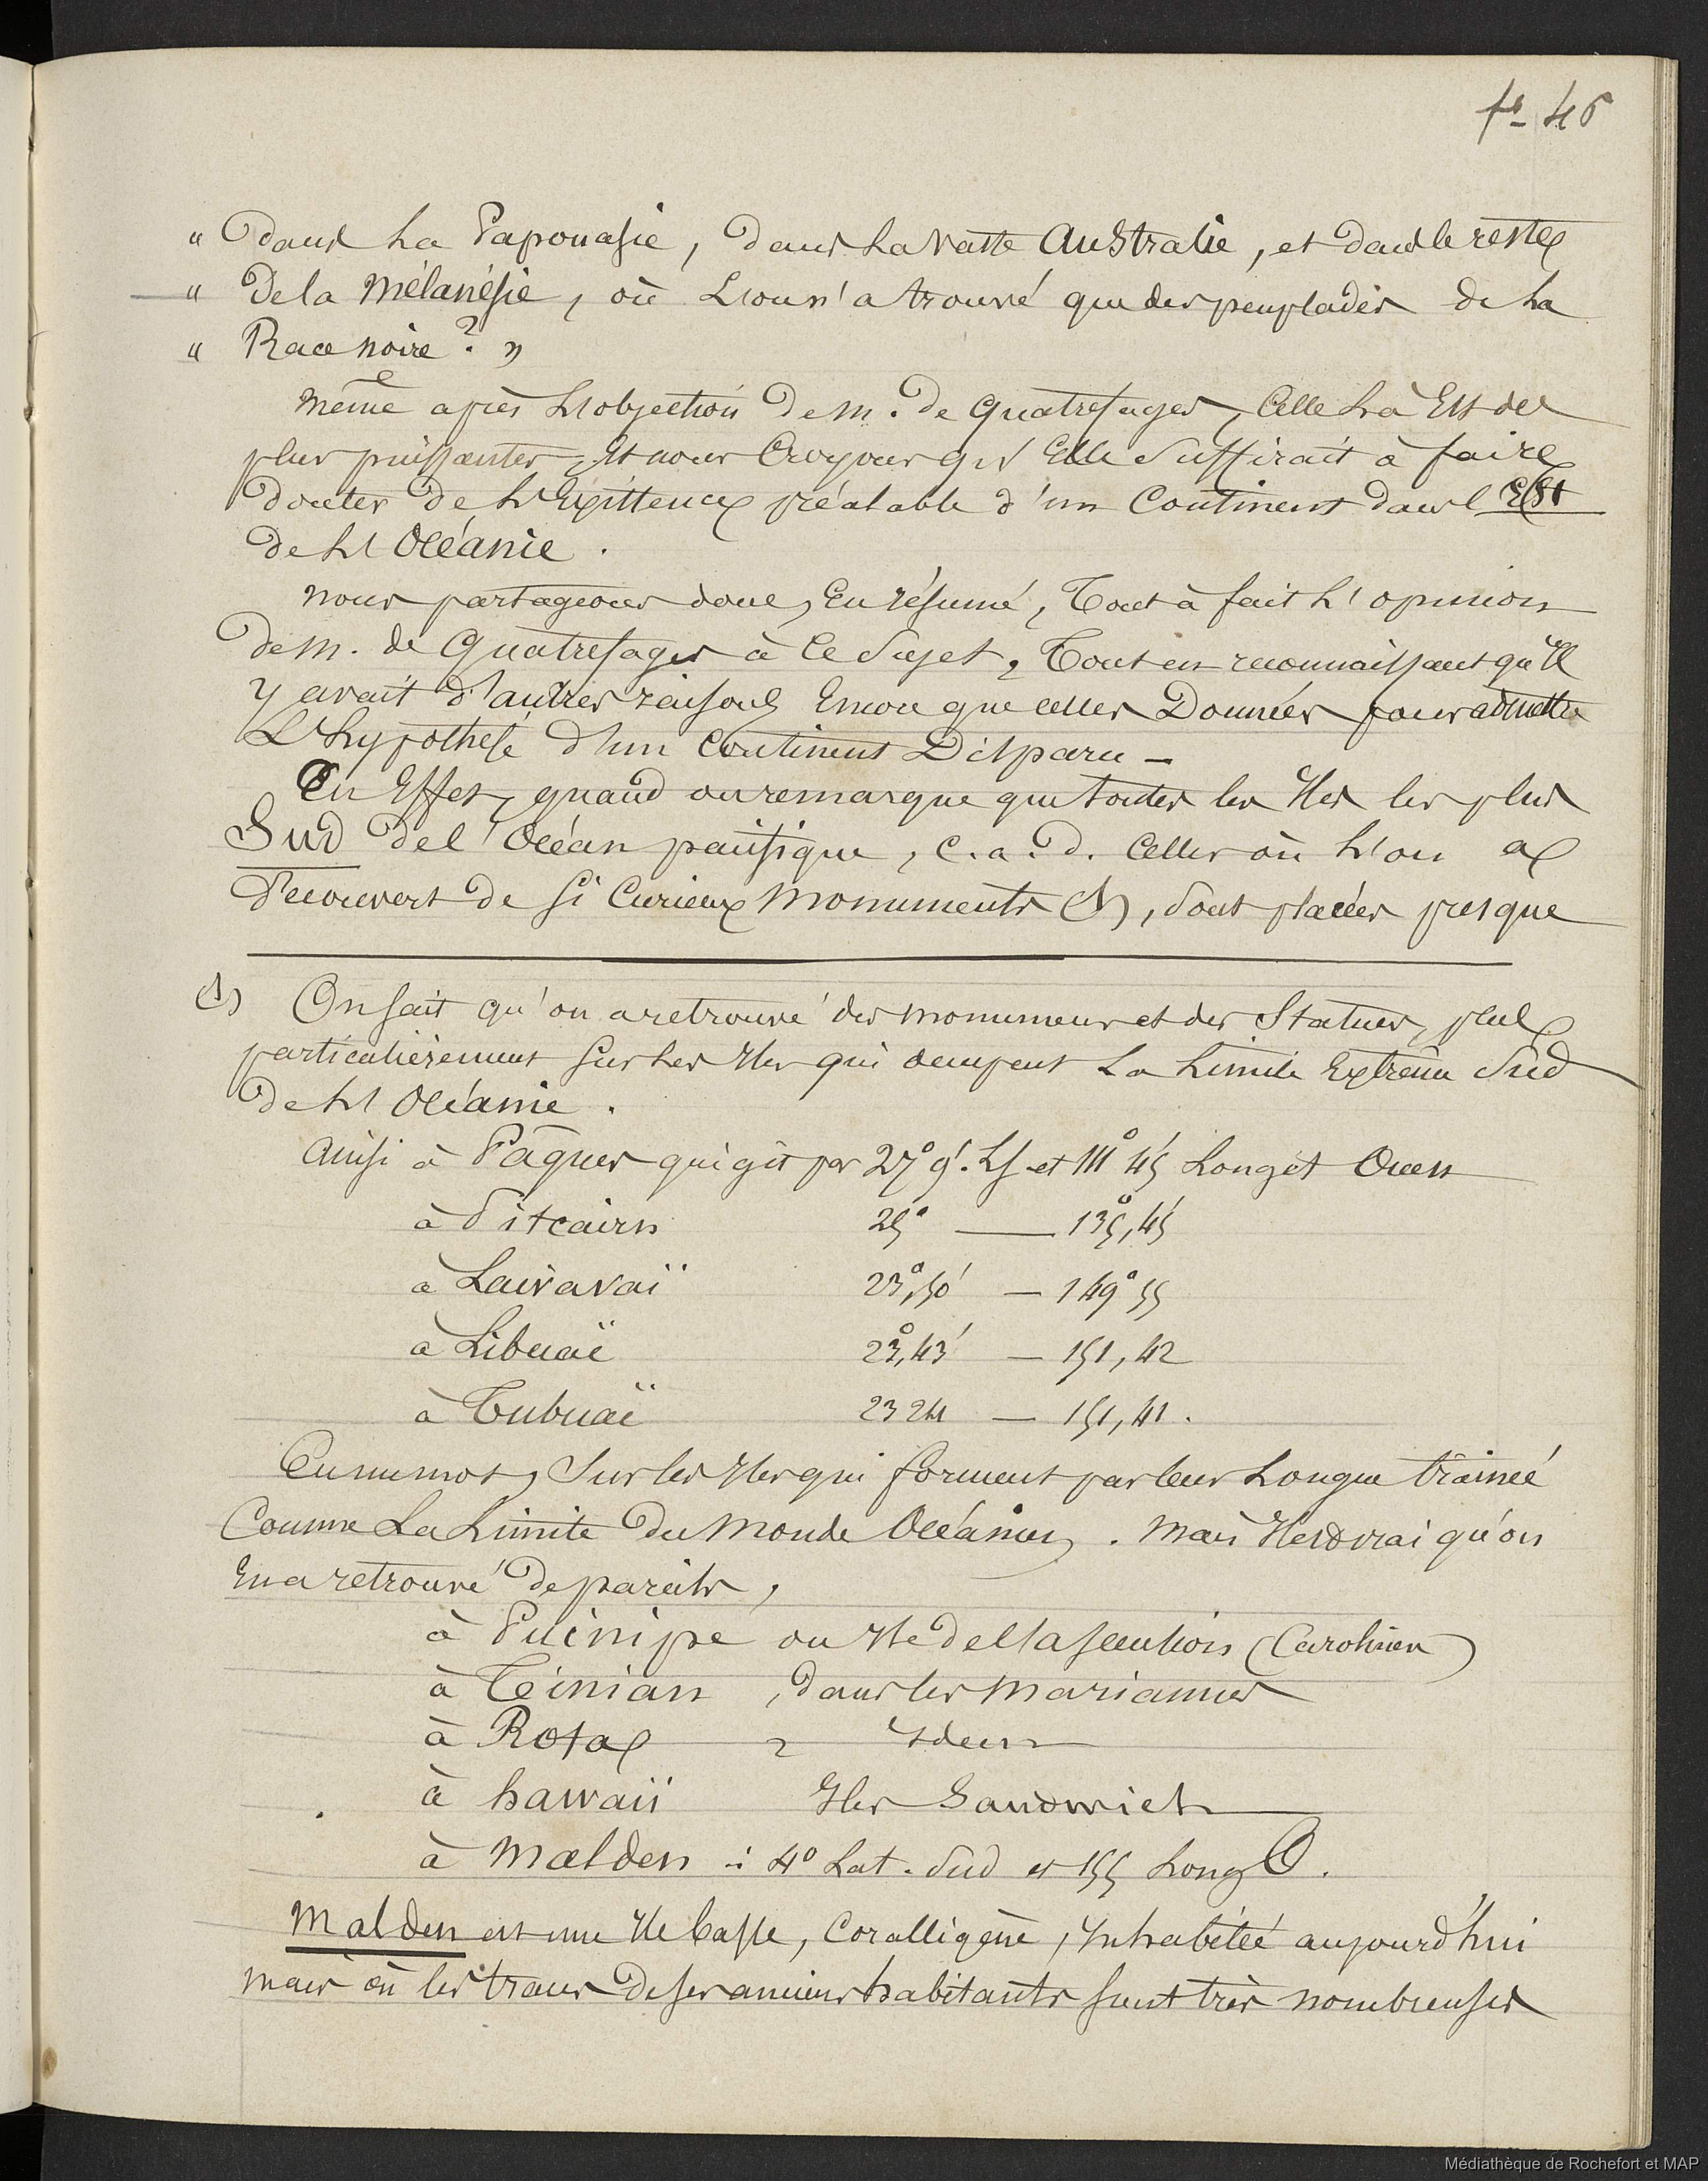 fo 46
" dans la Papouasie, dans la vaste Australie, et dans le reste
" De la Mélanésie, où L'on n'a trouvé que des peuplades de la
" Race noire? "
même après L'objection De m. de Quatrefages, Celle là Est des
plus puissantes, Et nous Croyons qu'Elle Suffirait à faire
Douter De L'Existence préalable d'un Continent dans l'Est
De L'Océanie.
nous partageons donc, En résumé, Tout à fait L'opinion
De m. de Quatrefages à Ce Sujet, Tout en reconnaissant qu'Il
y avait d'autres raisons Encore que celles Données pour admettre
L'hypothèse d'un Continent Disparu -
En Effet, quand on remarque que toutes les Iles les plus
Sud De l'Océan pacifique, c. a. d. Celles où L'on a
découvert de si Curieux Monuments (1), Sont placées presque
(1) On sait qu'on a retrouvé des monumens et des Statues, plus
particulièrement sur les Iles qui occupent La Limite Extrême Sud
De L'Océanie.
Ainsi à Pâques qui gît par 27° 9'. LS. et 111° 45' Longet Ouest
à Pitcairn 25° — 135°, 45'
à Laivavaï 23°, 50' — 149° 55
à Libuaï 23°, 43' — 151, 42
à Tubuaï 23 24 — 151, 41.
En un mot, Sur les Iles qui forment par leur Longue traînée
Comme La Limite Du Monde Océanien. Mais Il est vrai qu'on
En a retrouvé De pareils,
à Puinipe ou Ile De l'ascention (Carolines)
à Teinian, Dans les Mariannes
à Rota, Idem
à hawaii Iles Sandwich
à Malden : 4° Lat. Sud et 155 Long O.
Malden est une Ile basse, Coralligène, Inhabitée aujourd'hui
mais où les traces De ses anciens habitants sont très nombreuses
Médiathèque de Rochefort et MAP